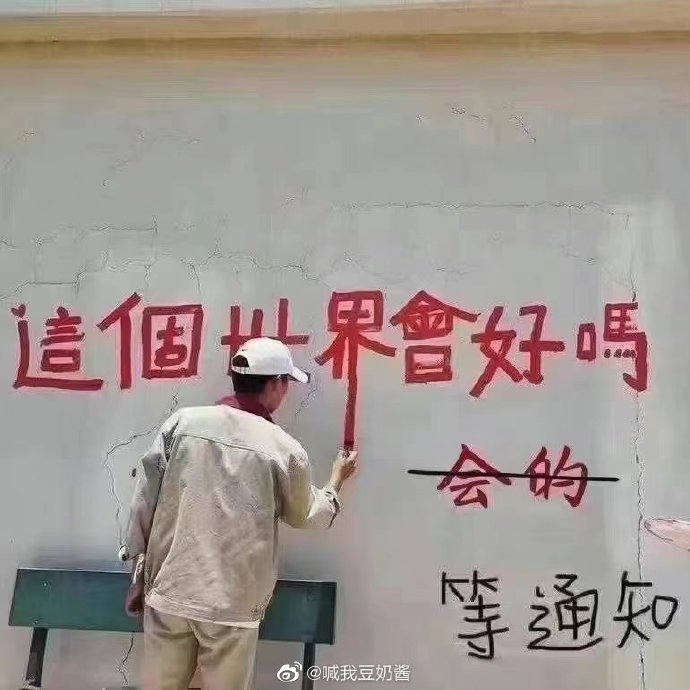 這個世界會好嗎
会的
等通知
@喊我豆奶酱